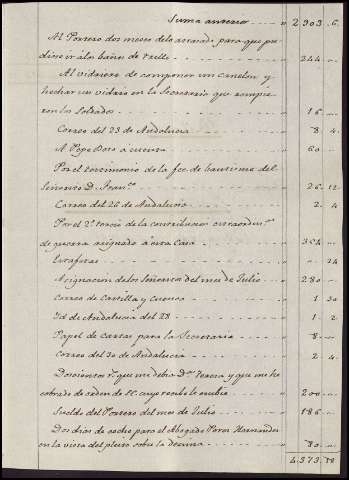 Suma anterior - - - " 2903 . 6.
Al Portero dos meses adelantado para que pu-
diese ir à los baños de Trillo - - - " 244 ...
Al vidriero de componer un canelon y
hechar un vidrio en la Secretaria que rompie-
ron los Soldados - - - " 16 ...
Correo del 23 de Andalucia - - - " 8 . 4.
A Pepe Doro à cuenta - - - " 60 ...
Por el testimonio de la fee de bautismo del
Señorito Dn. Franco. - - - " 26 . 12
Correo del 26 de Andalucia - - - " 2 . 4
Por el 2º tercio de la contribucion extraordin.ª
de guerra asignado à esta Casa - - - " 364 ...
Estafetas - - - " " . 24
Asignacion de los Señoritos del mes de Julio - - - " 280 ...
Correo de Castilla y Cuenca - - - " 1 . 30
Id de Andalucia del 28 - - - " 1 . 2
Papel de cartas para la Secretaria - - - " 8 ...
Correo del 30 de Andalucia - - - " 2 . 4.
Doscientos r.s que me debia Dn. Pereyra y que me he
cobrado de orden de SE. cuyo recibo le embié - - - " 200 ...
Sueldo del Portero del mes de Julio - - - " 186 ...
Dos dias de coche para el Abogado Perez Hernandez
en la vista del pleito sobre la decima - - - " 70 ...
4.373. 18